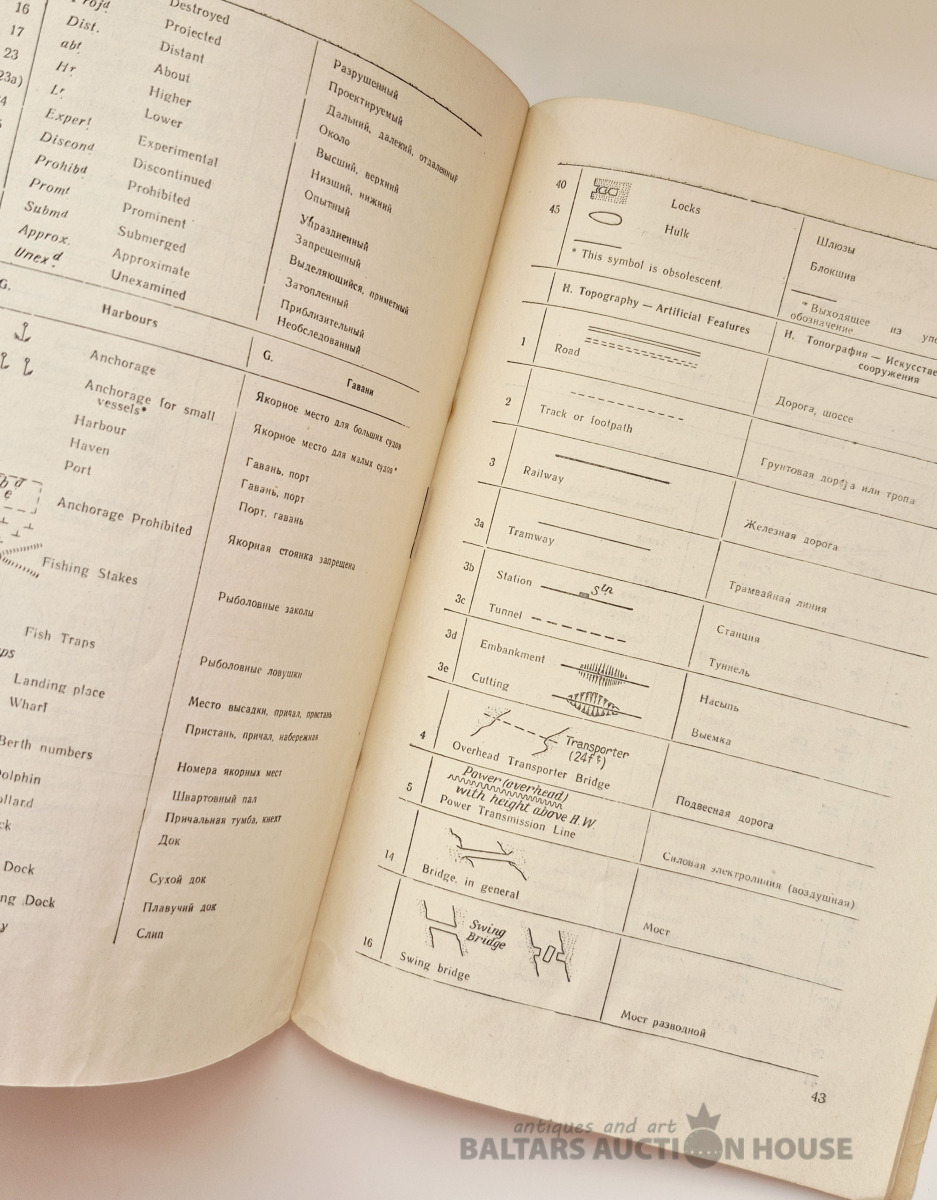 16 Destroyed Разрушенный
17 Dist. Projected Проектируемый
23 abt Distant Дальний, далекий, отдаленный
23a) Hr About Около
Lr Higher Высший, верхний
Exper! Lower Низший, нижний
Discond Experimental Опытный
Prohibd Discontinued Упраздненный
Promt Prohibited Запрещенный
Submd Prominent Выделяющийся, приметный
Approx. Submerged Затопленный
Unexd Approximate Приблизительный
Unexamined Необследованный
G. Harbours G. Гавани
Anchorage Якорное место для больших судов
Anchorage for small
vessels* Якорное место для малых судов*
Harbour Гавань, порт
Haven Гавань, порт
Port Порт, гавань
Anchorage Prohibited Якорная стоянка запрещена
Fishing Stakes Рыболовные заколы
Fish Traps Рыболовные ловушки
Landing place Место высадки, причал, пристань
Wharf Пристань, причал, набережная
Berth numbers Номера якорных мест
olphin Швартовный пал
ollard Причальная тумба, кнехт
ck Док
Dock Сухой док
ng Dock Плавучий док
Слип
40 Locks Шлюзы
45 Hulk Блокшив
* This symbol is obsolescent.
* Выходящее из упо
обозначение
H. Topography — Artificial Features
H. Топография — Искусстве
сооружения
1 Road Дорога, шоссе
2 Track or footpath Грунтовая дорога или тропа
3 Railway Железная дорога
3a Tramway Трамвайная линия
3b Station Stn Станция
3c Tunnel Туннель
3d Embankment Насыпь
3e Cutting Выемка
4 Transporter
(24ft)
Overhead Transporter Bridge Подвесная дорога
5 Power (overhead)
with height above H.W.
Power Transmission Line Силовая электролиния (воздушная)
14 Bridge, in general Мост
16 Swing
Bridge
Swing bridge Мост разводной
43
antiques and art
BALTARS AUCTION HOUSE